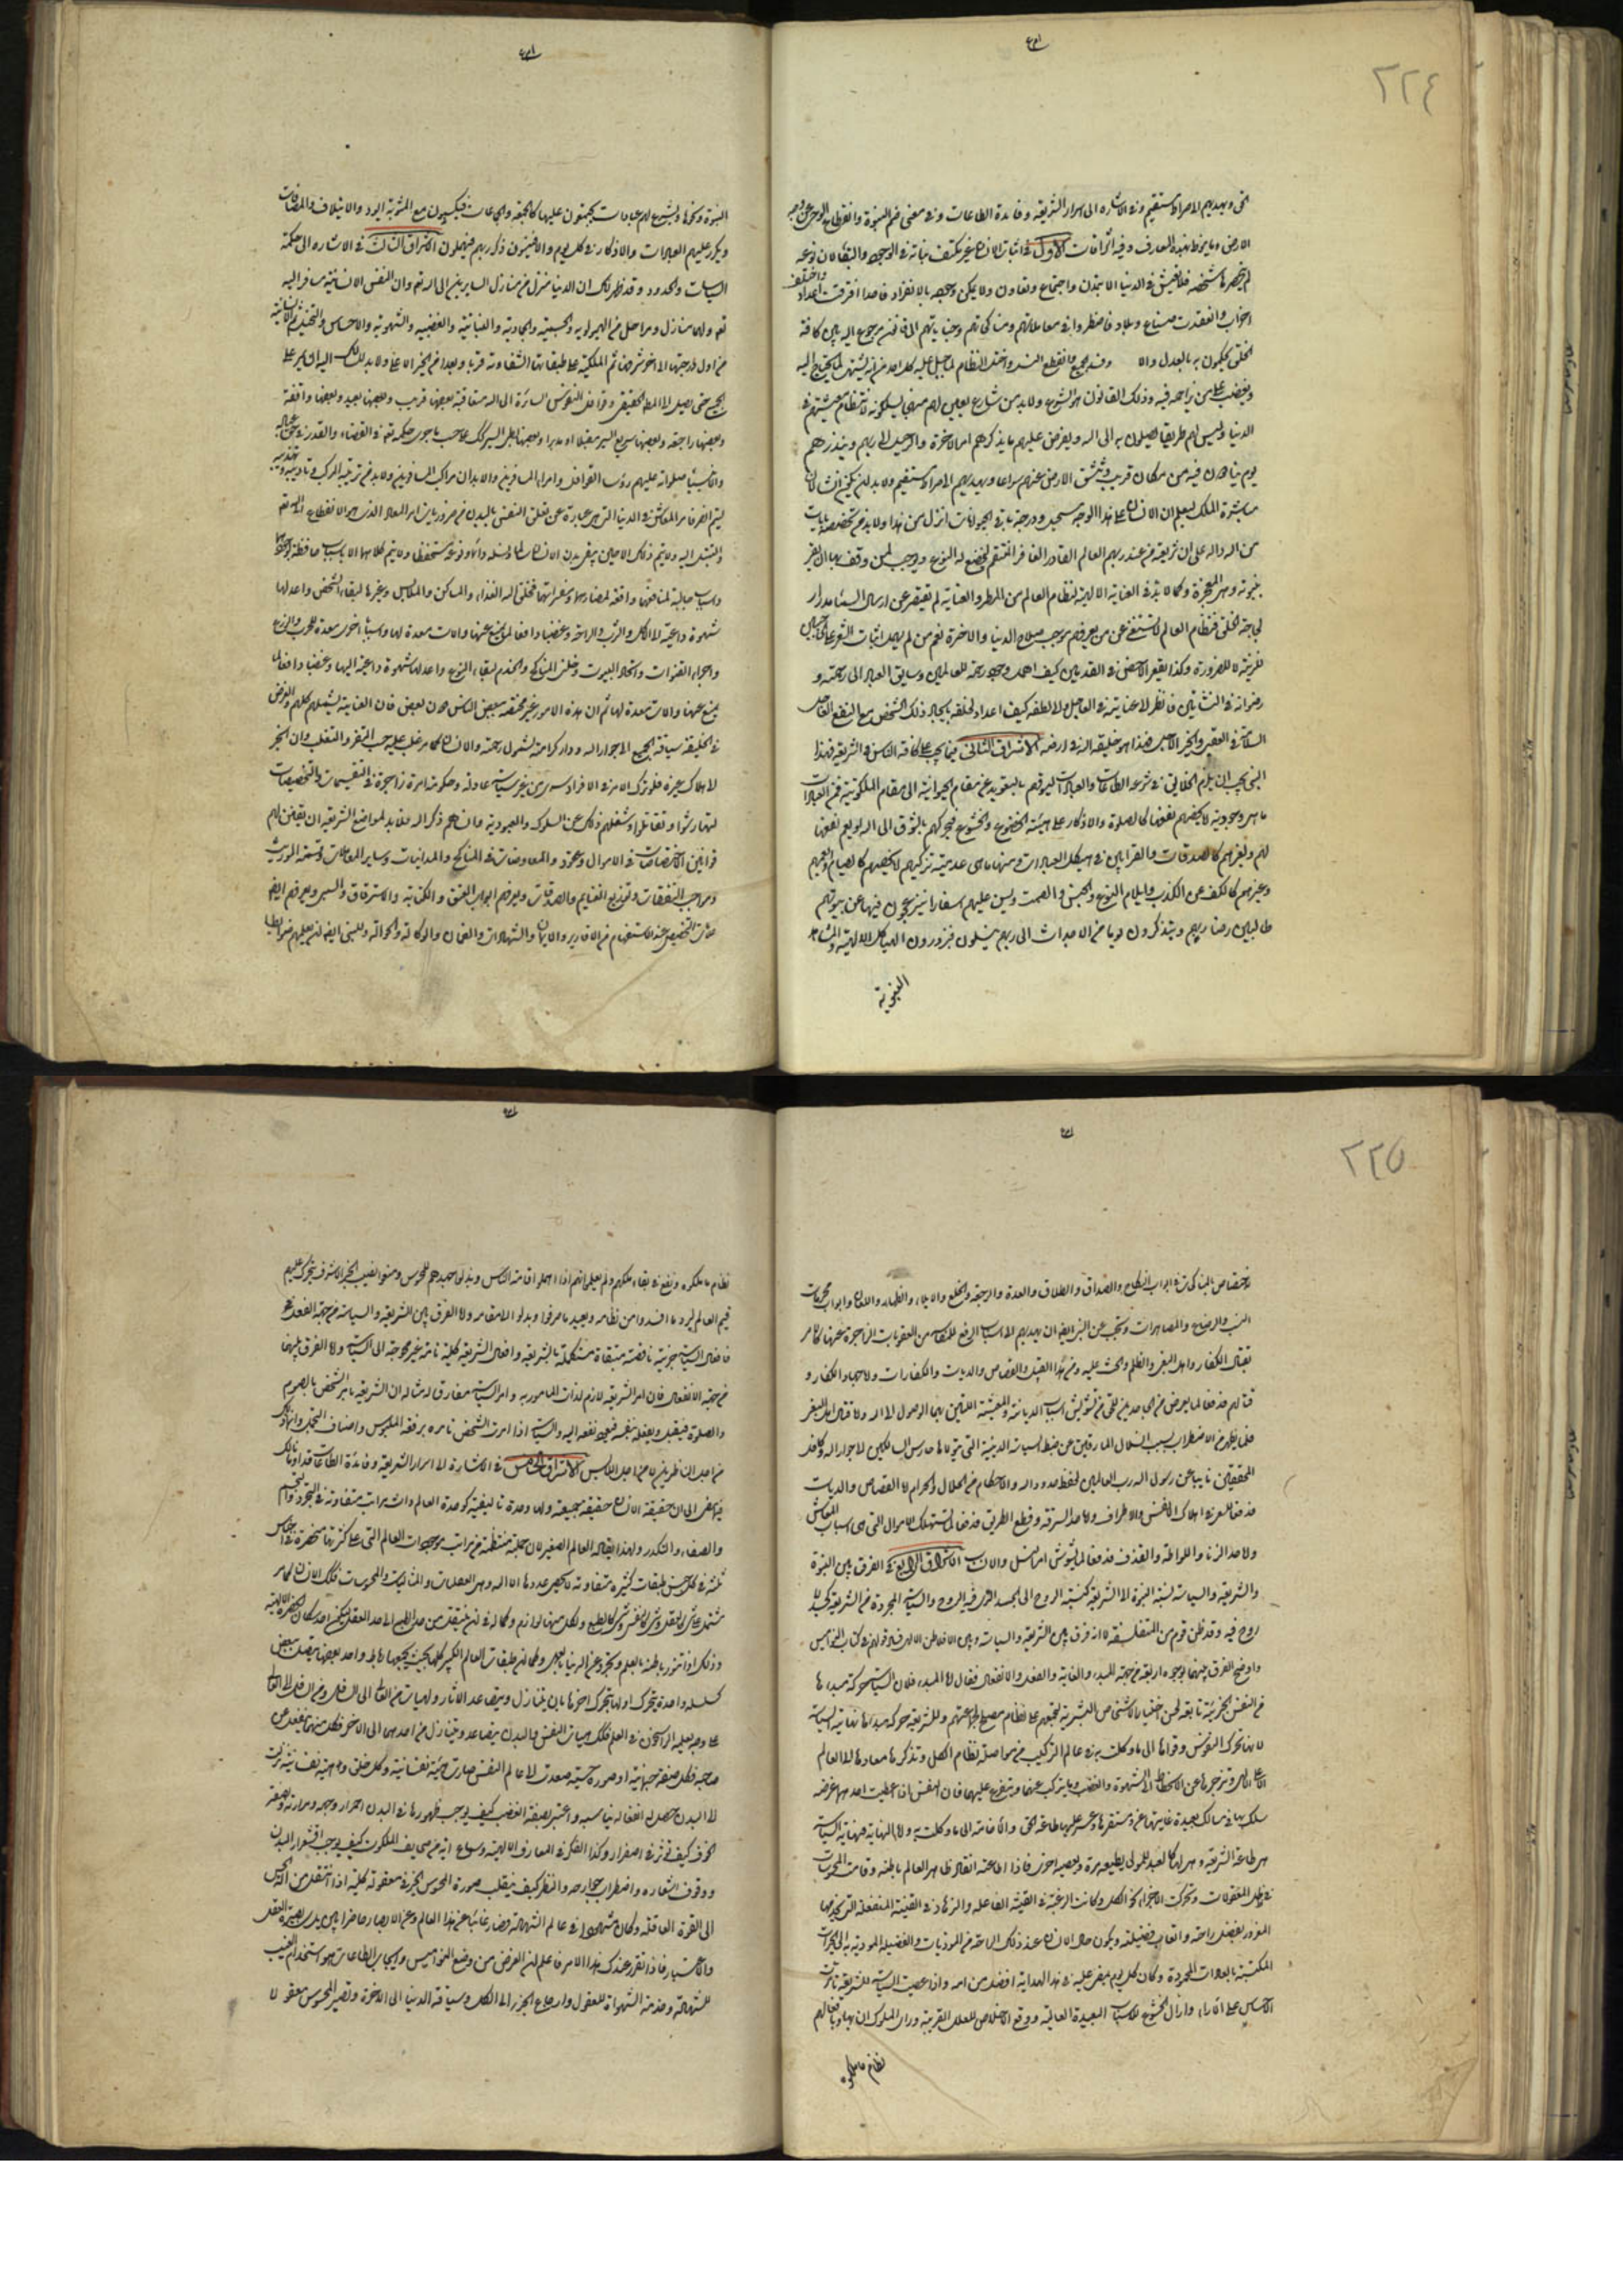 ٢٢٤
الحق ويهديهم الى صراط مستقيم وفي الاشارة الى اسرار الشريعة وفائدة الطاعات وفي معنى ختم النبوة وانقطاع الوحي عن وجه
الارض وما ينوط بهذه المعارف وفيه اشراقات الاول في اثبات الانسان غير مكتف بذاته في الوجود والبقاء لان نوعه
لم ينحصر في شخصه فلا يعيش في الدنيا الا بتمدن واجتماع وتعاون ولا يمكن وجوده بالانفراد فاعدادا افترقت واختلف
احزاب وانعقدت ضياع وبلاد فاضطروا في معاملاتهم ومناكحاتهم وجناياتهم الى قانون مرجوع اليه بين كافة
الخلق يحكمون به بالعدل والا فسد الجميع وانقطع النسل واختل النظام لما جبل عليه كل احد من انه يشتهي لما يحتاج اليه
ويغضب على من يزاحمه فيه وذلك القانون هو الشرع ولا بد من شارع يعين لهم منهجا يسلكونه لانتظام معيشتهم في
الدنيا وليس لهم طريقا يصلون به الى الله ويفرض عليهم ما يذكرهم امر الاخرة والرحيل الى ربهم وينذرهم
يوم ينادون فيه من مكان قريب وتنشق الارض عنهم سراعا ويهديهم الى صراط مستقيم ولا بد ان يكون انسانا لان
مباشرة الملك لتعليم الانسان على هذا الوجه مستحيل ودرجة باقي الحيوانات انزل من هذا ولا بد من تخصصه بآيات
من الله دالة على ان شريعته من عند ربهم العالم القادر الغافر المنتقم ليخضع له النوع ويوجب لمن وقف بها ان يقر
بنبوته وهي المعجزة وكما لا بد في العناية الالهية لنظام العالم من المطر والعناية لم تقصر عن ارسال السماء مدرارا
لحاجة الخلق فنظام العالم لا يستغني عن من يعرفهم موجب صلاح الدنيا والاخرة نعم من لم يهمل انبات الشعر على الحاجبين
للزينة لا للضرورة وكذا تقعير الاخمص في القدمين كيف اهمل وجود رحمة للعالمين وسايق العباد الى رحمته و
رضوانه في النشأتين فانظر الى عنايته في العاجل والى لطفه كيف اعد لخلقه بايجاد ذلك الشخص مع النفع العاجل
السلامة في العقبى والخير الآجل فهذا هو خليفة الله في ارضه الاشراق الثاني فيما يجب على كافة الناس في الشريعة فهذا
النبي يجب ان يلزم الخلايق في شرعه الطاعات والعبادات ليسوقهم بالتعويد عن مقام الحيوانية الى مقام الملكوتية فمن العبادات
ما هي وجودية لا يخصهم نفعها كالصلوة والاذكار على هيئة الخضوع والخشوع فيحركهم بالشوق الى الله او يعم نفعها
لهم ولغيرهم كالصدقات والقرابين في هيكل العبادات ومنها ما هي عدمية تزكيهم لا يخصهم كالصيام او يعمهم
وغيرهم كالكف عن الكذب وايلام النوع والجنس والصمت ويسن عليهم اسفارا ينزعجون فيها عن بيوتهم
طالبين رضا ربهم ويتذكرون يوما من الاجداث الى ربهم ينسلون فيزورون الهياكل الالهية والمشاهد
النبوية
النبوية ونحوها ويشرع لهم عبادات يجتمعون عليها كالجمعة والجماعات فيكسبون مع المثوبة التودد والايتلاف والمصافات
ويكرر عليهم العبادات والاذكار في كل يوم والا فينسون ذكر ربهم فيهملون الاشراق الثالث في الاشارة الى حكمة
السياسات والحدود وقد ظهر لك ان الدنيا منزل من منازل السايرين الى الله تع وان النفس الانسانية مسافر اليه
تع ولها منازل ومراحل من الهيولوية والجسمية والجمادية والنباتية والغضبية والشهوية والاحساس والتخيل ثم الانسانية
من اول درجتها الى اخر شرفها ثم الملكية على طبقاتها المتفاوتة قربا وبعدا من الخير الاعلى ولا بد للسالك اليه ان يمر على
الجميع حتى يصل الى المطلوب الحقيقي وقوافل النفوس السائرة الى الله متعاقبة بعضها قريب وبعضها بعيد وبعضها واقفة
وبعضها راجعة وبعضها سريع السير مقبلا او مدبرا وبعضها بطيء السير كل على حسب ما جرى حكمه تع في القضاء والقدر في حق عباده
والانبياء صلوات عليهم رؤساء القوافل وامراء المسافرين والابدان مراكب المسافرين ولا بد من تربية المركب وتاديبه وتهذيبه
ليتم السفر فامر المعاش في الدنيا التي هي عبارة عن تعلق النفس بالبدن من ضروريات امر المعاد الذي هو الانقطاع الى الله تع
والتبتل اليه ولا يتم ذلك الا حتى يبقى بدن الانسان سالما ونسله دائما ونوعه مستحفظا ولا يتم كلاهما الا باسباب حافظة لوجودهما
واسباب جالبة لمنافعهما ودافعة لمضارهما ومفسداتهما فخلق الله الغذاء والمساكن والملابس وغيرها لبقاء الشخص واعد لها
شهوة داعية الى الاكل والشرب والراحة وغضبا دافعا لما يمنع عنها والات معدة لها واسبابا اخرى معدة للحرب والزرع
واجراء القنوات واتخاذ البيوت وخلق المناكح والخدم لبقاء النوع واعد لها شهوة داعية اليها وغضبا دافعا لما
يمنع عنها والات معدة لها ثم ان هذه الامور غير مختصة ببعض الناس دون بعض فان العناية يشملهم كلهم والغرض
في الخليقة سياقة الجميع الى جوار الله ودار كرامته لشمول رحمته والانسان كما مر غلب عليه حب التفرد والتغلب وان انجر
الى هلاك غيره فلو ترك الامر في الافراد سدى من غير سياسة عادلة وحكومة امرة زاجرة في التقسيمات والتخصيصات
لتهارشوا وتقاتلوا وشغلهم ذلك عن السلوك والعبودية وانساهم ذكر الله فلا بد لواضع الشريعة ان يقنن لهم
قوانين الاختصاصات في الاموال وعقود المعاوضات في المناكح والمداينات وساير المعاملات وقسمة المواريث
ومواجب النفقات وتوزيع الغنايم والصدقات ويعرفهم ابواب العتق والكتابة والاسترقاق والسبي ويعرفهم ايضا
علامات التخصيص عند الاستفهام من الاقارير والايمان والشهادات والضمان والوكالة والحوالة وللنبي ايضا ان يعلمهم ضوابط
٢٢٥
الاختصاص بالمناكحات في ابواب النكاح والصداق والطلاق والعدة والرجعة والخلع والايلاء والظهار واللعان وابواب محرمات
النسب والرضاع والمصاهرات ويجب عن النبي ايضا ان يهديهم الى اسباب الدفع للمفاسد من العقوبات الزاجرة عنها كالامر
بقتال الكفار واهل البغي والظلم والحث عليه ومن هذا القبيل القصاص والديات والكفارات والجهاد الكفار و
قتالهم فدفعا لما يعرض من الجاحدين للحق من تشويش اسباب الديانة والمعيشة اللتين بهما الوصول الى الله واما قتال اهل البغي
فلما يظهر من الاضطراب بسبب انسلال المارقين عن ضبط السياسة الدينية التي يتولاها حارس السالكين الى جوار الله وكافل
المحققين نايبا عن رسول رب العالمين لحفظ حدود الله والاحكام من الحلال والحرام اما القصاص والديات
فدفعا للسعي في اهلاك الانفس والاطراف واما حد السرقة وقطع الطريق فدفعا لما يستهلك الاموال التي هي اسباب المعاش
واما حد الزنا واللواطة والقذف فدفعا لما يشوش امر النسل والانساب الاشراق الرابع في الفرق بين النبوة
والشريعة والسياسة نسبة النبوة الى الشريعة كنسبة الروح الى الجسد الذي فيه الروح والسياسة المجردة من الشريعة كجسد لا
روح فيه وقد ظن قوم من المتفلسفة لا انه فرق بين الشريعة والسياسة وبين افلاطن الالهي فساد قولهم في كتاب النواميس
واوضح الفرق بينهما بوجوه اربعة من جهة المبدء والغاية والفعل والانفعال فقال اما المبدء فلان السياسة حركة مبدءها
من النفس الجزئية تابعة لحسن اختيار الاشخاص البشرية لتجمعهم على نظام مصلح لجماعتهم والشريعة حركة مبدءها نهاية السياسة
لانها تحرك النفوس وقواها الى ما وكلت به في عالم التركيب من مواصلة نظام الكل وتذكرها معادها الى العالم
الاعلى الالهي وتزجرها عن الانحطاط الى الشهوة والغضب وما يتركب عنهما ويتفرع عليهما فان النفس اذا اعطيت احديهما غرضه
سلك بها في مسالك بعيدة غايتها عن مستقرها وعسر عليها طاعة الحق والاقامة الى ما وكلت به واما النهاية فنهاية السياسة
هي طاعة الشريعة وهي لها كالعبد للمولى يطيعه مرة ويعصيه اخرى فاذا اطاعته انقاد ظاهر العالم باطنه وقامت المحسوسات
في ظل المعقولات وتحركت الاجزاء نحو الكل وكانت الرغبة في القنية الفاعلة والزهادة في القنية المنفعلة التي يخدمها
المغرور بفضل راحته واتعاب فضيلته ويكون حال الانسان عند ذلك الراحة من الموذيات والفضيلة الموديه به الى الخيرات
المكتسبة بالعادات المحمودة وكان كل يوم يمضي عليه في هذا الهداية افضل من امسه واذا عصت السياسة للشريعة تامرت
الاحساس على الاراء وازال الخشوع للاسباب البعيدة العالية ووقع الاخلاص للعلل القريبة وراى الملوك ان بيدها وبافعالهم
نظام ما ملكوه
نظام ما ملكوه ونفع في بقاء ملكهم ولم يعلموا انهم اذا اهملوا اقامة الناس وبذلوا جهدهم للمحسوس ومنعوا نصيب الجزء الاشرف يتحرك عليهم
قيم العالم ليرد ما افسدوا من نظامه ويعيد ما حرفوا وبدلوا الى مقامه واما الفرق بين الشريعة والسياسة من جهة الفعل
فافعال السياسة جزئية ناقصة مستبقاة مستكملة بالشريعة وافعال الشريعة كلية تامة غير محوجة الى السياسة واما الفرق بينهما
من جهة الانفعال فان امر الشريعة لازم لذات المامور به وامر السياسة مفارق له مثاله ان الشريعة تامر الشخص بالصوم
والصلوة فيقبل ويفعله بنفسه فيعود نفعه اليه والسياسة اذا امرت الشخص تامره برفعة الملبوس واصناف التجمل وانما ذلك
من اجل الناظرين لا من اجل اللابس الاشراق الخامس في الاشارة الى اسرار الشريعة وفائدة الطاعات قد اومانا لك
فيما مضى الى ان حقيقة الانسان حقيقة جمعية ولها وحدة تاليفية كوحدة العالم ذات مراتب متفاوتة في التجرد والتجسم
والصفاء والتكدر ولهذا يقال له العالم الصغير لان جملته منتظمة من مراتب موجودات العالم التي على كثرتها منحصرة في اجناس
ثلثة في كل جنس طبقات كثيرة متفاوتة لا يحصى عددها الا الله وهي العقليات والمثاليات والمحسوسات فكذلك الانسان كما مر
مشتمل على شيء كالعقل وشيء كالنفس وشيء كالطبع ولكل منها لوازم وكماله في ان ينتقل من حد الطبع الى حد العقل ليكون احد سكان الحضرة الالهية
وذلك اذا تنور باطنه بالعلم وتجرد عن الدنيا بالعمل وكما ان طبقات العالم الكبير كلها بحيث يجمعها رباط واحد بعضها يتصل ببعض
كسلسلة واحدة يتحرك اولها بتحرك اخرها بان يتنازل ويتصاعد الاثار والهيئات من العالي الى السافل ومن السافل الى العالي
على وجه يعلمه الراسخون في العلم فكذلك هيئات النفس والبدن يتصاعد ويتنازل من احدهما الى الاخر فكل منهما ينفعل عن
صاحبه فكل صفة جسمانية او صورة حسية صعدت الى عالم النفس صارت هيئة نفسانية وكل خلق وهيئة نفسانية نزلت
الى البدن حصل له انفعال يناسبه واعتبر بصفة الغضب كيف يوجب ظهورها في البدن احمرار وجهه وحرارته وصفة
الخوف كيف تؤثر في اصفراره وكذا الفكر في المعارف الالهية وسماع اية من صحايف الملكوت كيف يوجب اقشعرار البدن
ووقوف اشعاره واضطراب جوارحه وانظر كيف ينقلب صورة المحسوس الجزئي معقولة كلية اذا انتقل من الة الحس
الى القوة العاقلة وكان مشهودا في عالم الشهادة فصار غائبا عن هذا العالم وعن الابصار حاضرا بين يدي بصيرة العقل
والاعتبار فاذا تقرر عندك هذا الامر فاعلم ان الغرض من وضع النواميس وايجاب الطاعات هو استخدام الغيب
للشهادة وخدمة الشهوات للعقول وارجاع الجزء الى الكل وسياقة الدنيا الى الاخرة وتصيير المحسوس معقولا